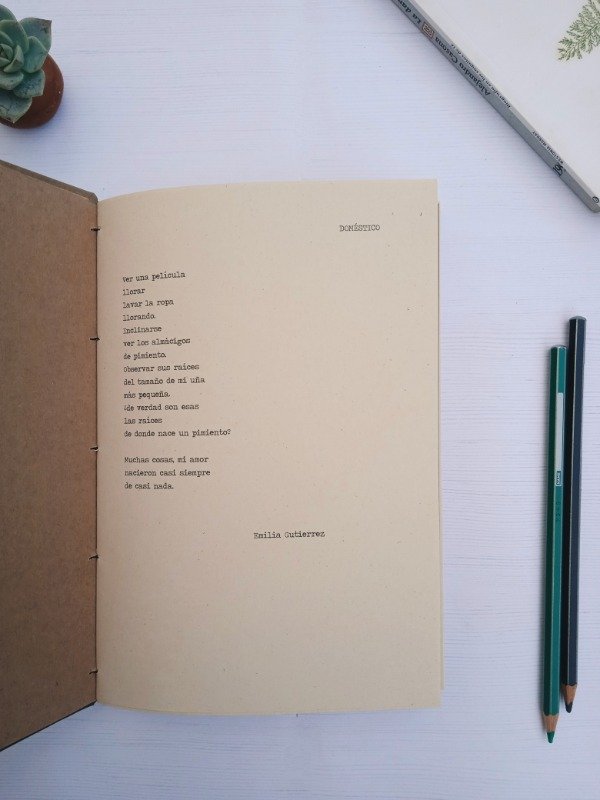 Alejandro Castro
DOMÉSTICO
Ver una película
llorar
lavar la ropa
llorando.
Inclinarse
ver los almácigos
de pimiento.
Observar sus raíces
del tamaño de mi uña
más pequeña.
¿de verdad son esas
las raíces
de donde nace un pimiento?
Muchas cosas, mi amor
nacieron casi siempre
de casi nada.
Emilia Gutierrez